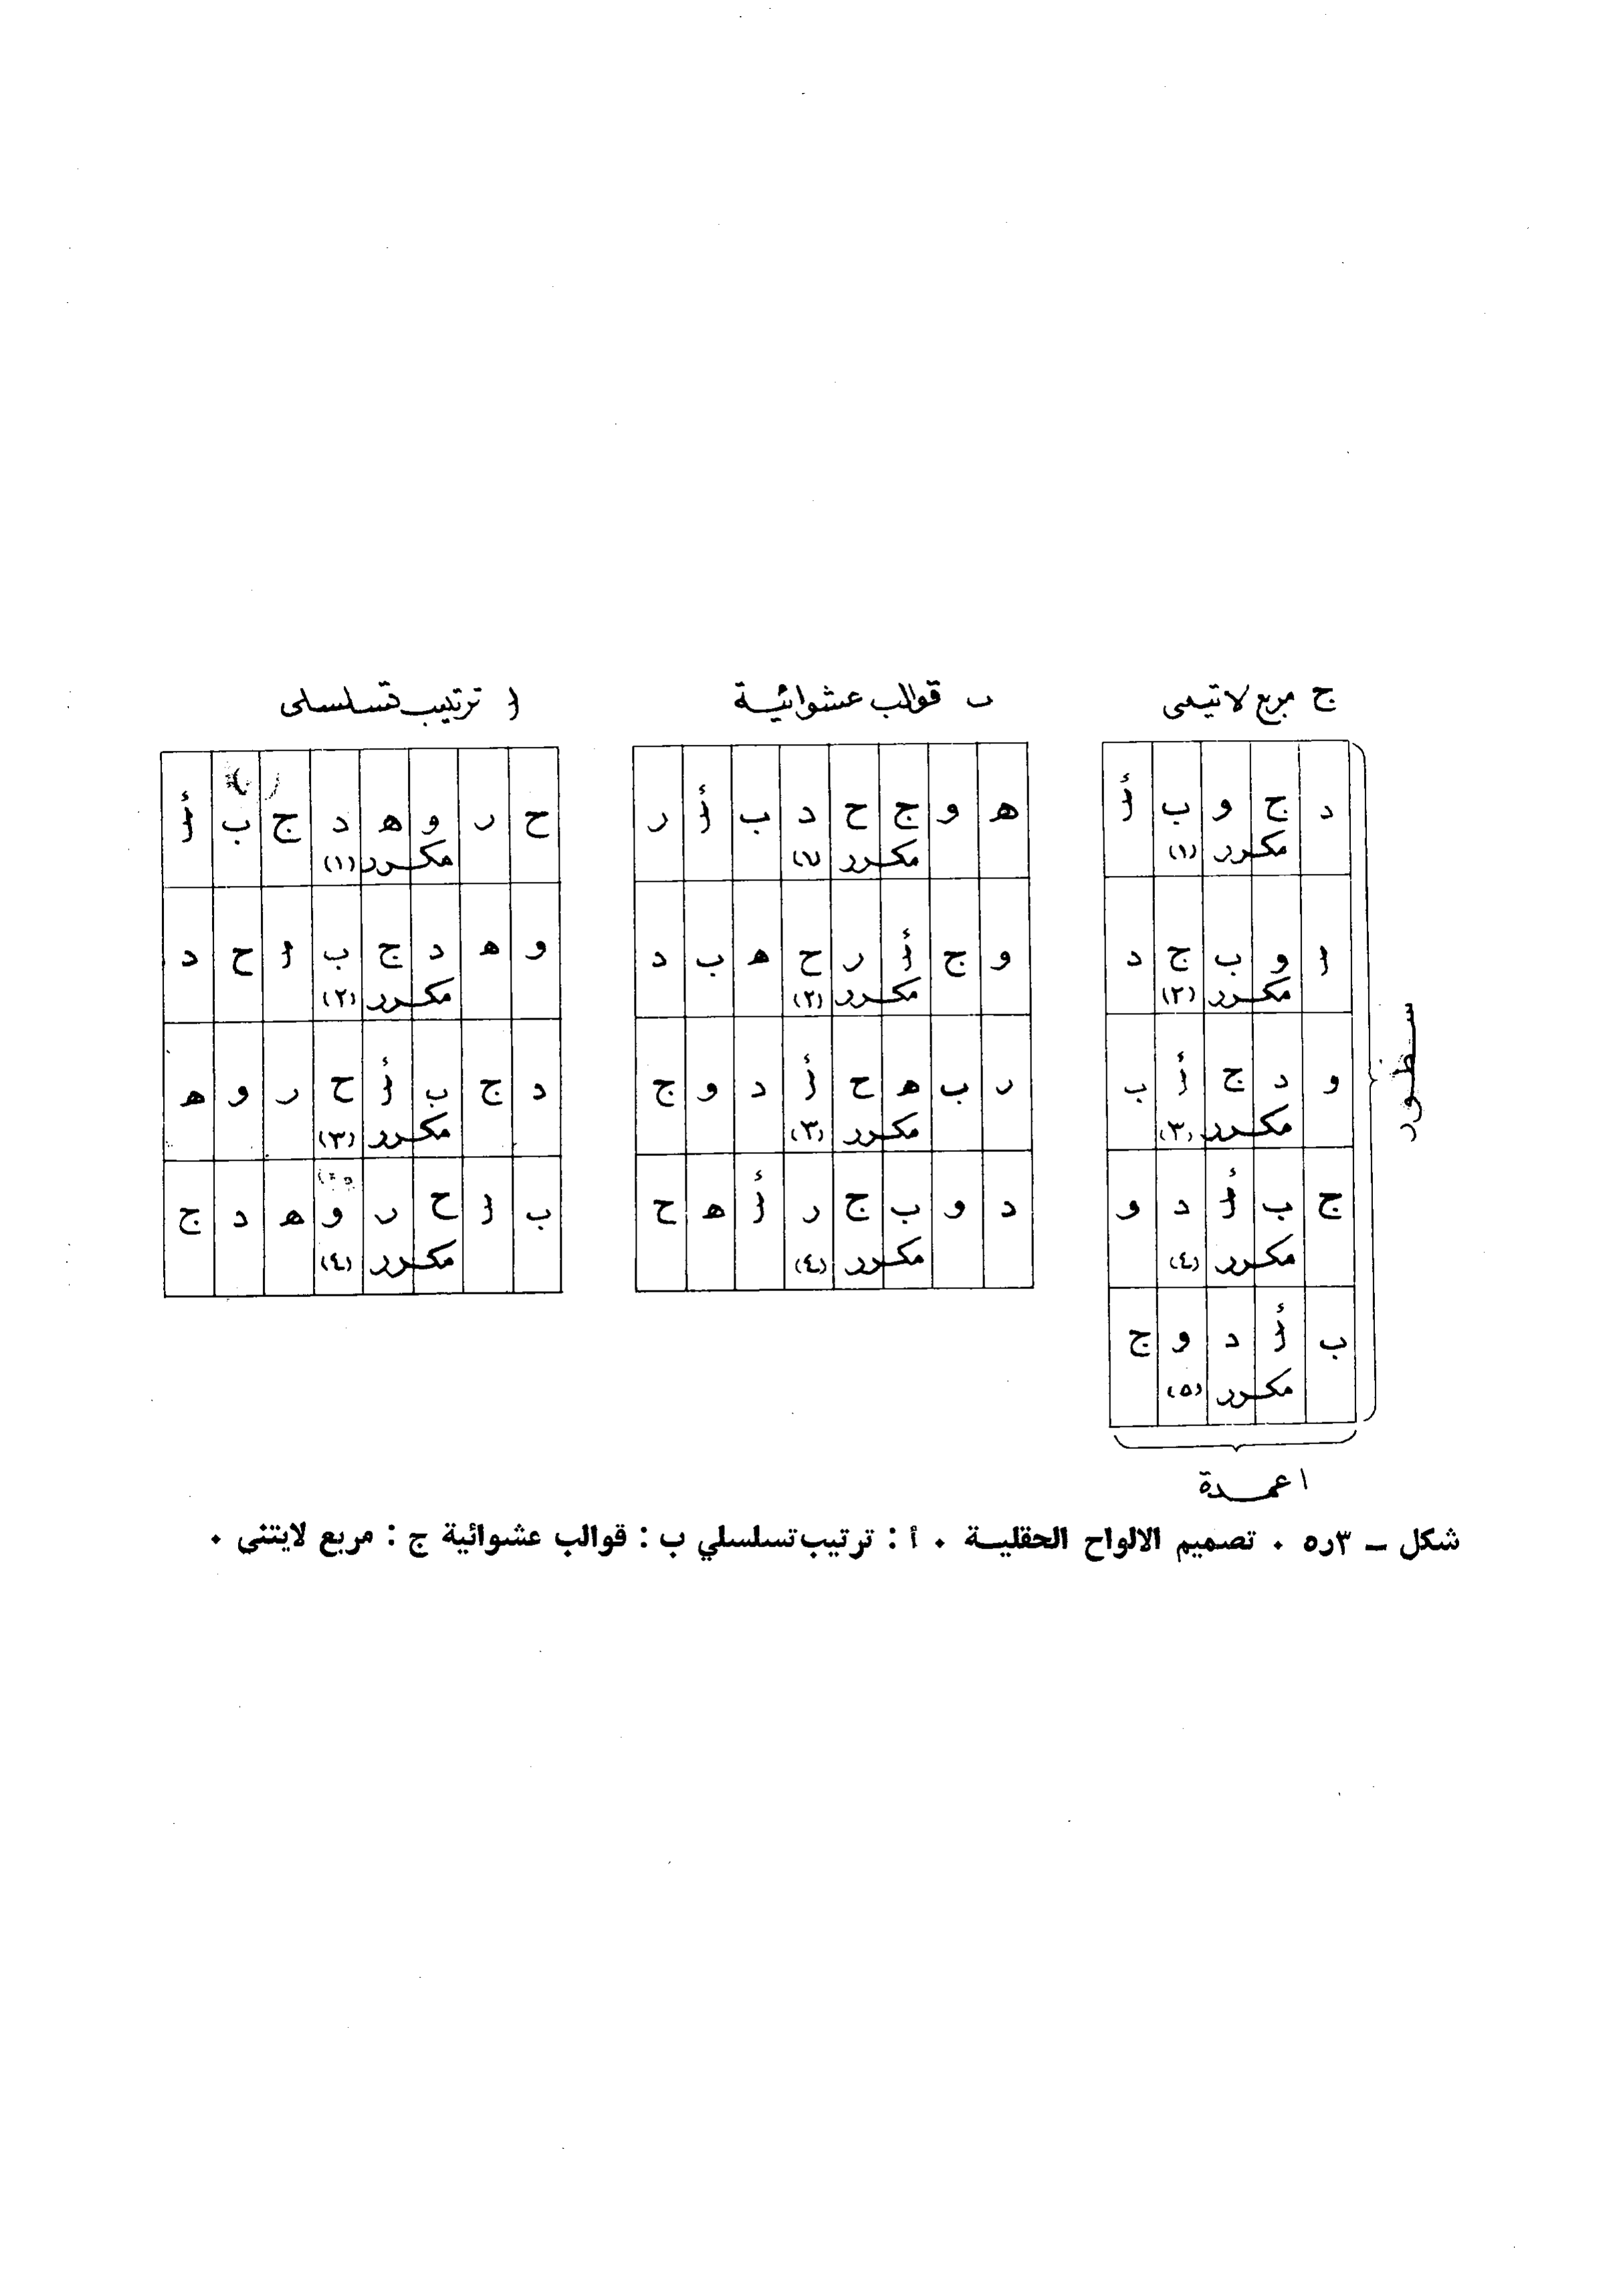 ج مربع لاتيني
د ج و ب أ
مكرر (١)
ا و ب ج د
مكرر (٢)
و د ج أ ب
مكرر (٣)
ج ب أ د و
مكرر (٤)
ب أ د و ج
مكرر (٥)
سطور
اعمدة
ب قوالب عشوائية
ه و ج ح د ب أ ر
مكرر (١)
و ج أ ر ح ه ب د
مكرر (٢)
ر ب ه ح أ د و ج
مكرر (٣)
د و ب ج ر أ ه ح
مكرر (٤)
أ ترتيب تسلسلى
ح ر و ه د ج ب أ
مكرر (١)
و ه د ج ب ا ح د
مكرر (٢)
د ج ب أ ح ر و ه
مكرر (٣)
ب أ ح ر و ه د ج
مكرر (٤)
شكل ــ ٣ر٥ ٠ تصميم الالواح الحقلية ٠ أ : ترتيب تسلسلي ب : قوالب عشوائية ج : مربع لايتنى ٠